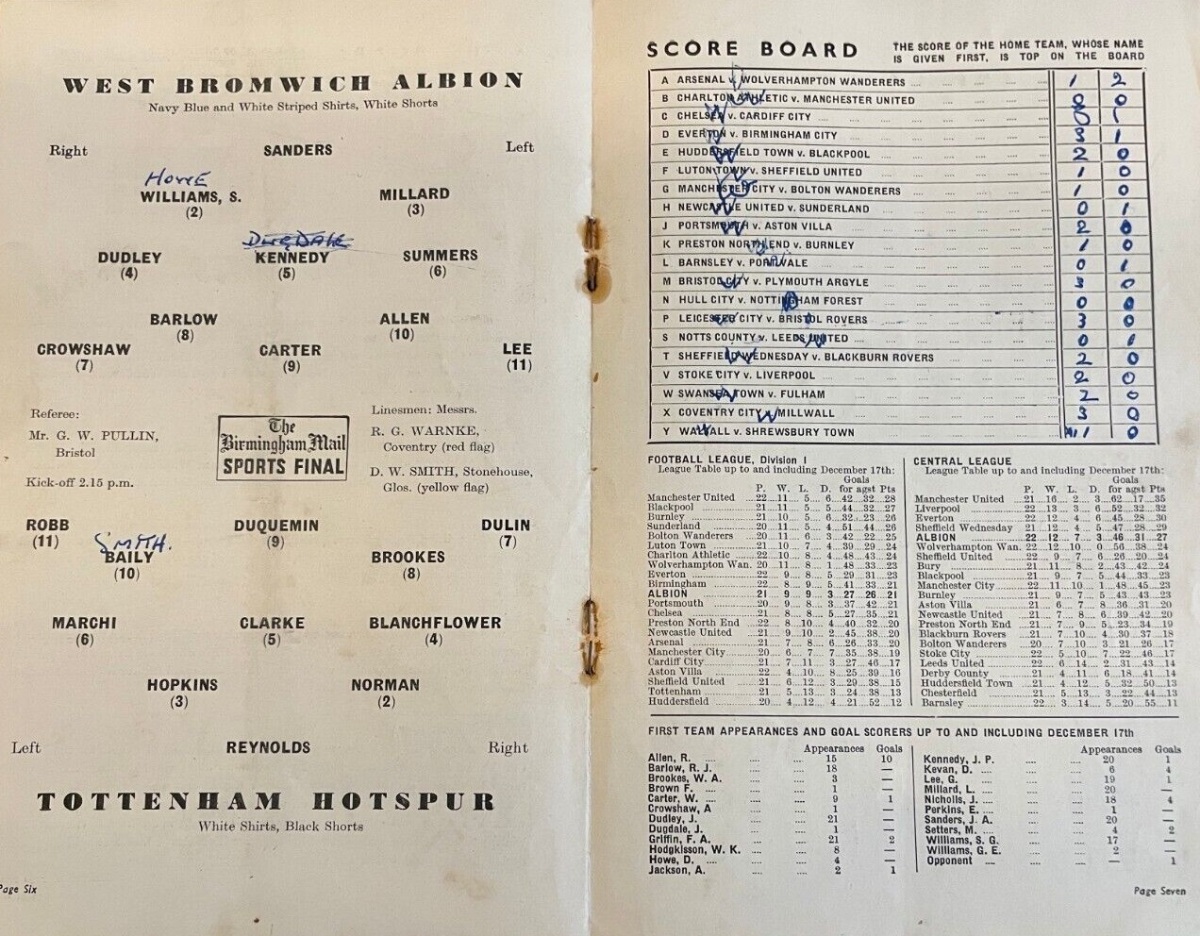 WEST BROMWICH ALBION
Navy Blue and White Striped Shirts, White Shorts
Right SANDERS Left
Howe
WILLIAMS, S. MILLARD
(2) (3)
DUGDALE
DUDLEY KENNEDY SUMMERS
(4) (5) (6)
BARLOW ALLEN
(8) (10)
CROWSHAW CARTER LEE
(7) (9) (11)
Referee:
Mr. G. W. PULLIN,
Bristol
Kick-off 2.15 p.m.
The
Birmingham Mail
SPORTS FINAL
Linesmen: Messrs.
R. G. WARNKE,
Coventry (red flag)
D. W. SMITH, Stonehouse,
Glos. (yellow flag)
ROBB DUQUEMIN DULIN
(11) (9) (7)
SMITH.
BAILY BROOKES
(10) (8)
MARCHI CLARKE BLANCHFLOWER
(6) (5) (4)
HOPKINS NORMAN
(3) (2)
Left REYNOLDS Right
TOTTENHAM HOTSPUR
White Shirts, Black Shorts
Page Six
SCORE BOARD
THE SCORE OF THE HOME TEAM, WHOSE NAME
IS GIVEN FIRST, IS TOP ON THE BOARD
A ARSENAL v. WOLVERHAMPTON WANDERERS 1 2
B CHARLTON ATHLETIC v. MANCHESTER UNITED 0 0
C CHELSEA v. CARDIFF CITY
D EVERTON v. BIRMINGHAM CITY 3 1
E HUDDERSFIELD TOWN v. BLACKPOOL 2 0
F LUTON TOWN v. SHEFFIELD UNITED 1 0
G MANCHESTER CITY v. BOLTON WANDERERS 1 0
H NEWCASTLE UNITED v. SUNDERLAND 0 1
J PORTSMOUTH v. ASTON VILLA 2 0
K PRESTON NORTH END v. BURNLEY 1 0
L BARNSLEY v. PORT VALE 0 1
M BRISTOL CITY v. PLYMOUTH ARGYLE 3 0
N HULL CITY v. NOTTINGHAM FOREST 0 0
P LEICESTER CITY v. BRISTOL ROVERS 3 0
S NOTTS COUNTY v. LEEDS UNITED 0 1
T SHEFFIELD WEDNESDAY v. BLACKBURN ROVERS 2 0
V STOKE CITY v. LIVERPOOL 2 0
W SWANSEA TOWN v. FULHAM 2 0
X COVENTRY CITY v. MILLWALL 3 0
Y WALSALL v. SHREWSBURY TOWN 1 0
FOOTBALL LEAGUE, Division I
League Table up to and including December 17th:
Goals
P. W. L. D. for agst Pts
Manchester United 22 11 5 6 42 32 28
Blackpool 21 11 5 5 44 32 27
Burnley 21 10 5 6 32 23 26
Sunderland 20 11 5 4 51 44 26
Bolton Wanderers 20 11 6 3 42 22 25
Luton Town 21 10 7 4 39 29 24
Charlton Athletic 22 10 8 4 48 43 24
Wolverhampton Wan. 20 11 8 1 48 33 23
Everton 22 9 8 5 29 31 23
Birmingham 22 8 9 5 41 33 21
ALBION 21 9 9 3 27 26 21
Portsmouth 20 9 8 3 37 42 21
Chelsea 21 8 8 5 27 35 21
Preston North End 22 8 10 4 40 32 20
Newcastle United 21 9 10 2 45 38 20
Arsenal 21 7 8 6 26 33 20
Manchester City 20 6 7 7 35 38 19
Cardiff City 21 7 11 3 27 46 17
Aston Villa 22 4 10 8 25 39 16
Sheffield United 21 6 12 3 29 38 15
Tottenham 21 5 13 3 24 38 13
Huddersfield 20 4 12 4 21 52 12
CENTRAL LEAGUE
League Table up to and including December 17th:
Goals
P. W. L. D. for agst Pts
Manchester United 21 16 2 3 62 17 35
Liverpool 22 13 3 6 52 32 32
Everton 22 12 4 6 45 28 30
Sheffield Wednesday 21 12 4 5 47 28 29
ALBION 22 12 7 3 46 31 27
Wolverhampton Wan. 22 12 10 0 56 38 24
Sheffield United 22 9 7 6 26 20 24
Bury 21 11 8 2 43 42 24
Blackpool 21 9 7 5 44 33 23
Manchester City 22 11 10 1 48 45 23
Burnley 21 9 7 5 43 43 23
Aston Villa 21 6 7 8 36 31 20
Newcastle United 21 7 8 6 39 42 20
Preston North End 21 7 9 5 23 34 19
Blackburn Rovers 21 7 10 4 30 37 18
Bolton Wanderers 20 7 10 3 21 26 17
Stoke City 22 5 10 7 22 46 17
Leeds United 22 6 14 2 31 43 14
Derby County 21 4 11 6 18 41 14
Huddersfield Town 21 4 12 5 32 50 13
Chesterfield 21 5 13 3 22 44 13
Barnsley 22 3 14 5 20 55 11
FIRST TEAM APPEARANCES AND GOAL SCORERS UP TO AND INCLUDING DECEMBER 17th
Appearances Goals
Allen, R. 15 10
Barlow, R. J. 18 —
Brookes, W. A. 3 —
Brown F. 1 —
Carter, W. 9 1
Crowshaw, A 1 —
Dudley, J. 21 —
Dugdale, J. 1 —
Griffin, F. A. 21 2
Hodgkisson, W. K. 8 —
Howe, D. 4 —
Jackson, A. 2 1
Appearances Goals
Kennedy, J. P. 20 1
Kevan, D. 6 4
Lee, G. 19 1
Millard, L. 20 —
Nicholls, J. 18 4
Perkins, E. 1 —
Sanders, J. A. 20 —
Setters, M. 4 2
Williams, S. G. 17 —
Williams, G. E. 2 —
Opponent — 1
Page Seven